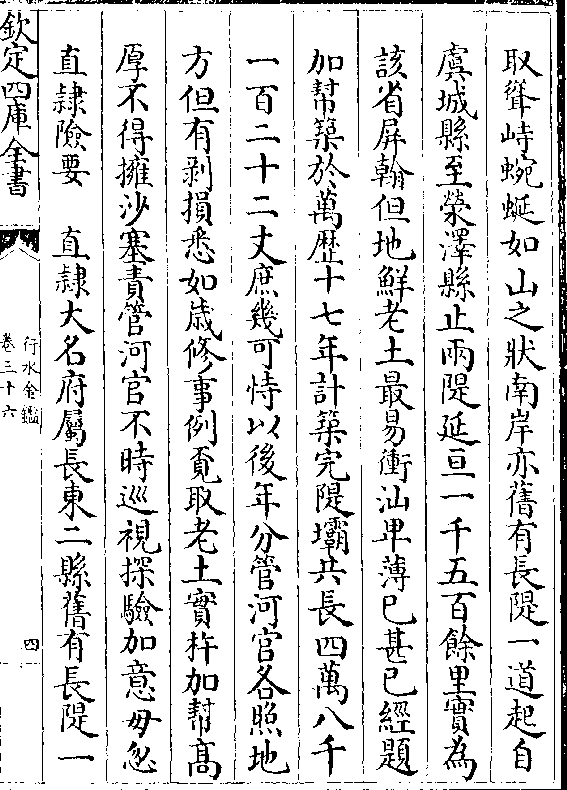 取聳峙蜿蜒如山之狀南岸亦舊有長隄一道起自
虞城縣至滎澤縣止兩隄延亘一千五百餘里實為
該省屏翰但地鮮老土最易衝汕卑薄已甚已經題
加幫築於萬歷十七年計築完隄壩共長四萬八千
一百二十二丈庶幾可恃以後年分管河官各照地
方但有剥損悉如歲修事例覓取老土實杵加幫高
厚不得擁沙塞責管河官不時巡視探驗加意毋忽
直隸險要　直隸大名府屬長東二縣舊有長隄一
欽定四庫全書
行水金鑑
卷三十六
四